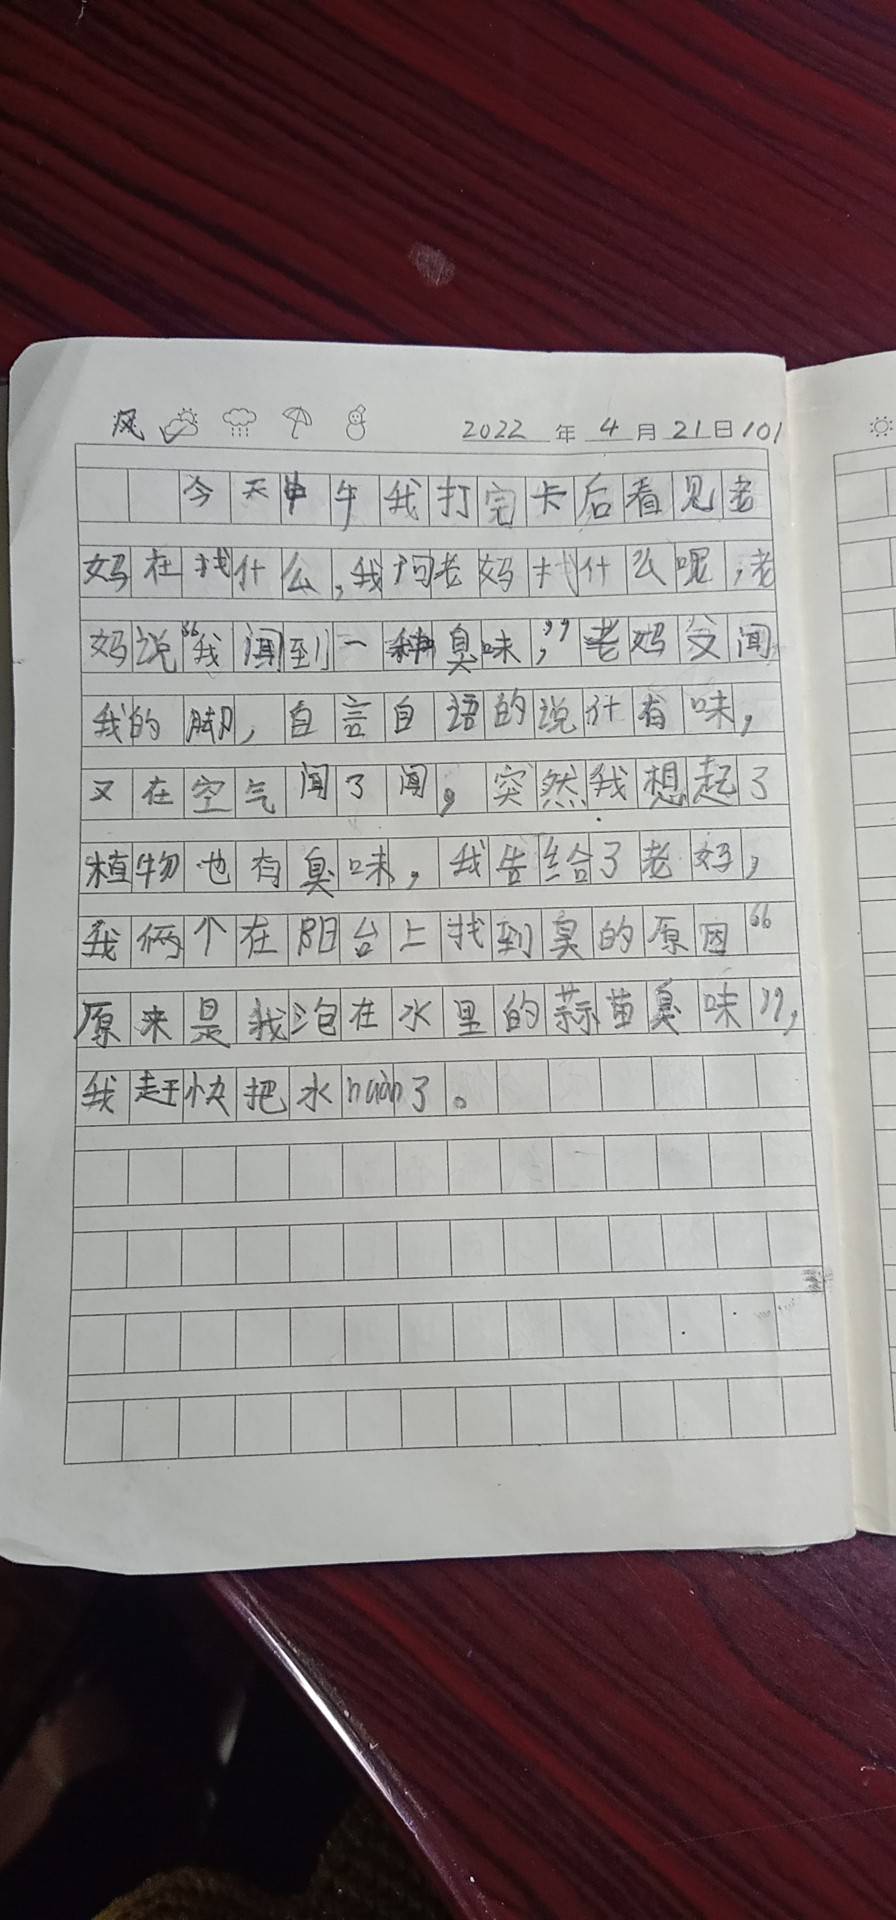 风 2022年4月21日101
今天中午我打完卡后看见老
妈在找什么,我问老妈找什么呢,老
妈说“我闻到一种臭味,”老妈又闻
我的脚,自言自语的说什有味,
又在空气闻了闻。突然我想起了
植物也有臭味,我告给了老妈,
我俩个在阳台上找到臭的原因“
原来是我泡在水里的蒜苗臭味”,
我赶快把水huàn了。